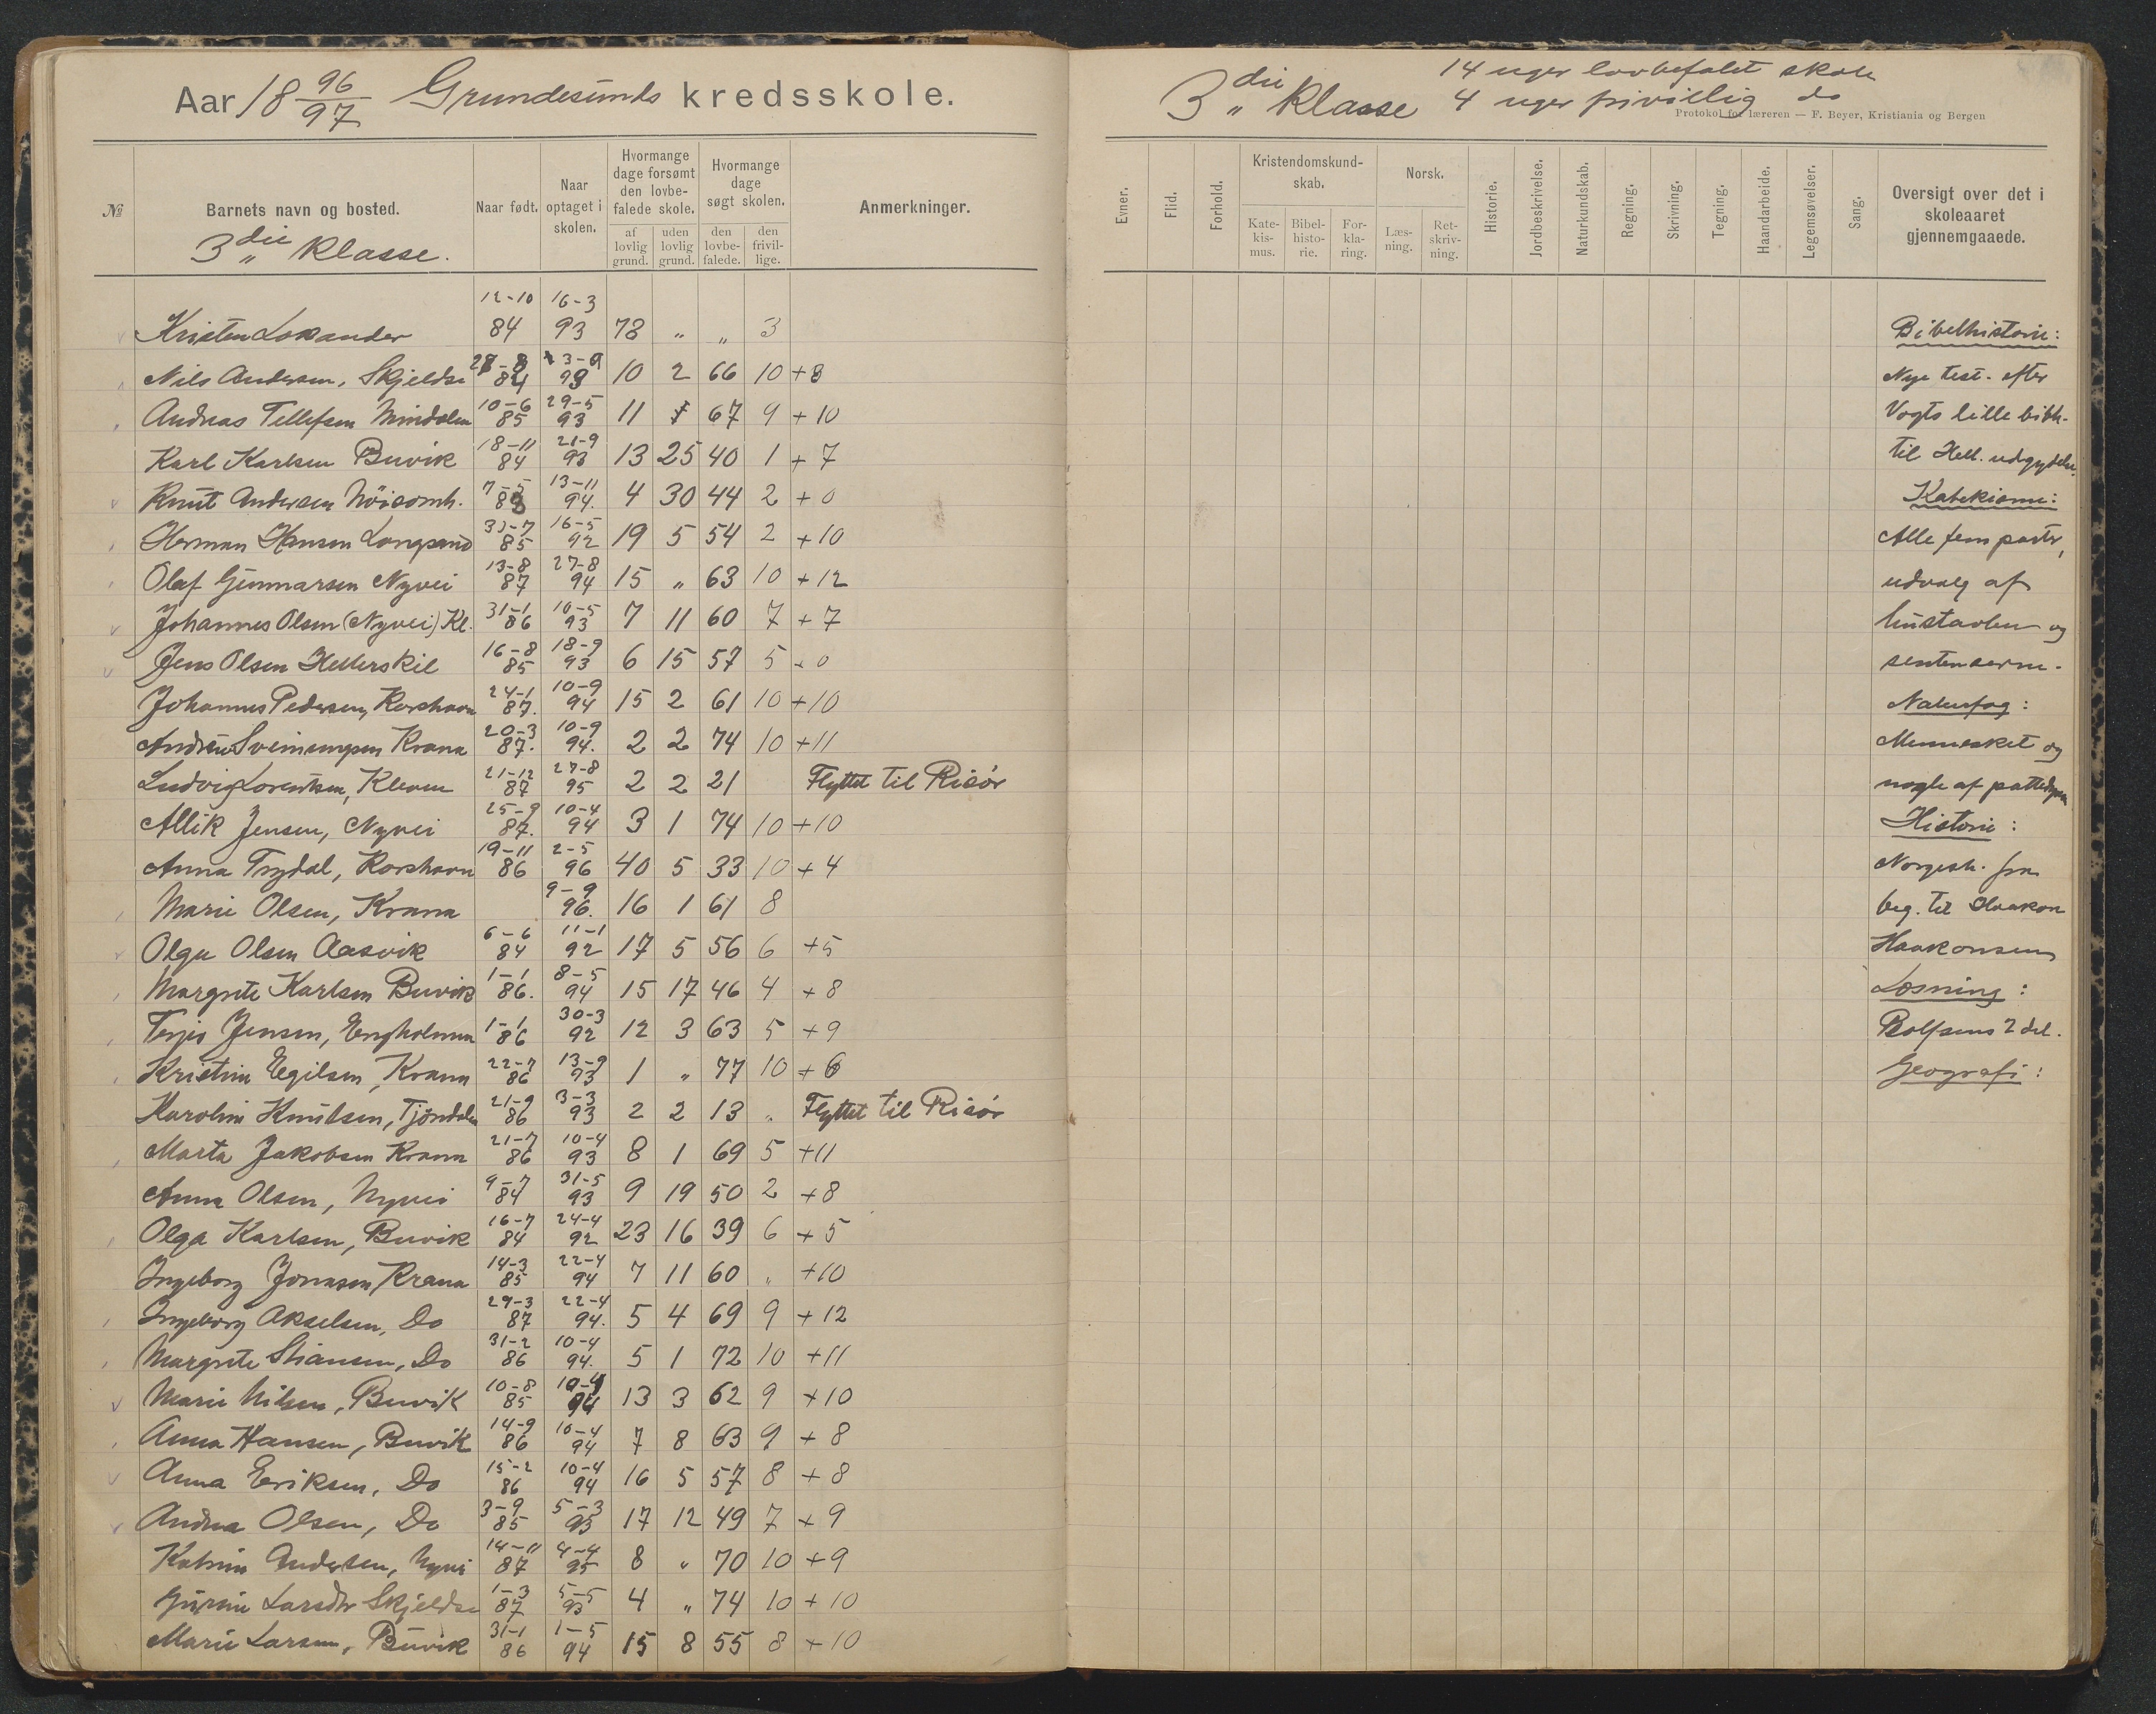 Aar 18 96/97 Grundesunds kredsskole.
№ Barnets navn og bosted. Naar født. Naar optaget i skolen. Hvormange dage forsømt den lovbefalede skole. Hvormange dage søgt skolen. Anmerkninger.
af lovlig grund. uden lovlig grund. den lovbefalede. den frivillige.
3die klasse.
Kristen Losander 12-10 84 16-3 93 78 „ „ 3
Nils Andersen, Skjeldsø 84 10 2 66 10 + 8
Andreas Tellefsen 10-6 85 29-5 93 11 67 9 + 10
Karl Karlsen Buvik 18-11 84 21-9 93 13 25 40 1 + 7
Knut Andersen 7-5 13-11 94. 4 30 44 2 + 0
Herman Hansen Langsund 85 16-5 92 19 5 54 2 + 10
Olaf Gunnarsen Nyvei 13-8 87 27-8 94 15 „ 63 10 + 12
Johannes Olsen (Nyvei) Kl. 31-1 86 10-5 93 7 11 60 7 + 7
Jens Olsen Hellerskil 16-8 85 18-9 93 6 15 57 5 + 0
Johannes Pedersen, Korshavn 24-1 87. 10-9 94 15 2 61 10 + 10
Andreas Sveinungsen Krana 20-3 87. 10-9 94. 2 2 74 10 + 11
Ludvig Lorentsen, Kleven 21-12 87 27-8 95 2 2 21 Flyttet til Risör
Allik Jensen, Nyvei 25-9 87. 10-4 94 3 1 74 10 + 10
Anna Trydal, Korshavn 19-11 86 2-5 96 40 5 33 10 + 4
Marie Olsen, Krana 9-9 96. 16 1 61 8
Olga Olsen Aasvik 6-6 84 11-1 92 17 5 56 6 + 5
Margrete Karlsen Buvik 1-1 86. 8-5 94 15 17 46 4 + 8
Jensen, Engholmen 1-1 86 30-3 92 12 3 63 5 + 9
Kristine Egilsen, Krana 22-7 86 13-9 93 1 „ 77 10 + 6
Karoline Knutsen, Tjöndalen 21-9 86 3-3 93 2 2 13 „ Flyttet til Risör
Marta Jakobsen Krana 21-7 86 10-4 93 8 1 69 5 + 11
Anna Olsen, Nyvei 9-7 84 31-5 93 9 19 50 2 + 8
Olga Karlsen, Buvik 16-7 84 24-4 92 23 16 39 6 + 5
Ingeborg Jonasen Krana 14-3 85 22-4 94 7 11 60 „ + 10
Ingeborg Akselsen, Do 29-3 87 22-4 94. 5 4 69 9 + 12
Margrete Stiansen, Do 31-2 86 10-4 94. 5 1 72 10 + 11
Marie Nilsen, Buvik 10-8 85 10-4 94 13 3 62 9 + 10
Anna Hansen, Buvik 14-9 86 10-4 94 7 8 63 9 + 8
Anna Eriksen, Do 15-2 86 10-4 94 16 5 57 8 + 8
Andrea Olsen, Do 3-9 85 5-3 93 17 12 49 7 + 9
Katrine Andersen, Nyvei 14-11 87 4-4 95 8 „ 70 10 + 9
Larsdtr Skjeldsø 1-3 87 5-5 93 4 „ 74 10 + 10
Marie Larsen, Buvik 31-1 86 1-5 94 15 8 55 8 + 10
3die klasse 14 uger lovbefalet skole
4 uger frivillig do
Protokol for læreren — F. Beyer, Kristiania og Bergen
Evner. Flid. Forhold. Kristendomskundskab. Norsk. Historie. Jordbeskrivelse. Naturkundskab. Regning. Skrivning. Tegning. Haandarbeide. Legemsøvelser. Sang. Oversigt over det i skoleaaret gjennemgaaede.
Katekismus. Bibelhistorie. Forklaring. Læsning. Retskrivning.
Bibelhistorie:
Nye test. efter
Vogts lille bibh.
til Hell. udgydelse.
Katekisme:
Alle fem parter,
udvalg af
hustavlen og
sentenserne.
Naturfag:
Mennesket og
nogle af pattedyrene
Historie:
Norgesh. fra
beg. til Haakon
Haakonsen
Læsning:
Rolfsens 2 del.
Geografi: